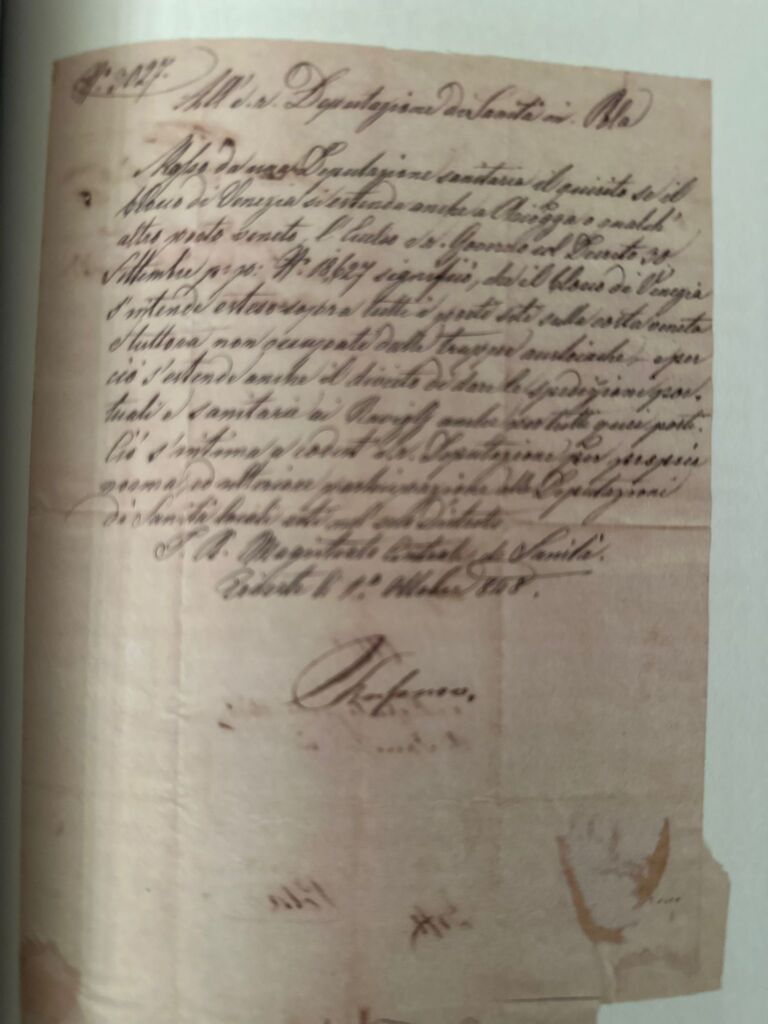 N.º 3027.
All' i. r. Deputazione di Sanità in Pola
Mosso da una Deputazione sanitaria il quesito se il
blocco di Venezia si estenda anche a Chiozza o qualch'
altro porto veneto, l'Eccelso i. r. Governo col Decreto 30
Settembre p. p.º N.º 18,627 significò, che il blocco di Venezia
s'intende esteso sopra tutti i porti siti sulla costa veneta
e tuttora non occupati dalle truppe austriache e per
ciò s'estende anche il divieto di dare le spedizioni por-
tuali e sanitarie ai Navigli anche per tutti questi porti.
Ciò s'intima a codest' i. r. Deputazione per propria
norma, ed ulteriore partecipazione alle Deputazioni
di Sanità locali site nel suo Distretto
I. R. Magistrato Centrale di Sanità.
Trieste li 1.º Ottobre 848.